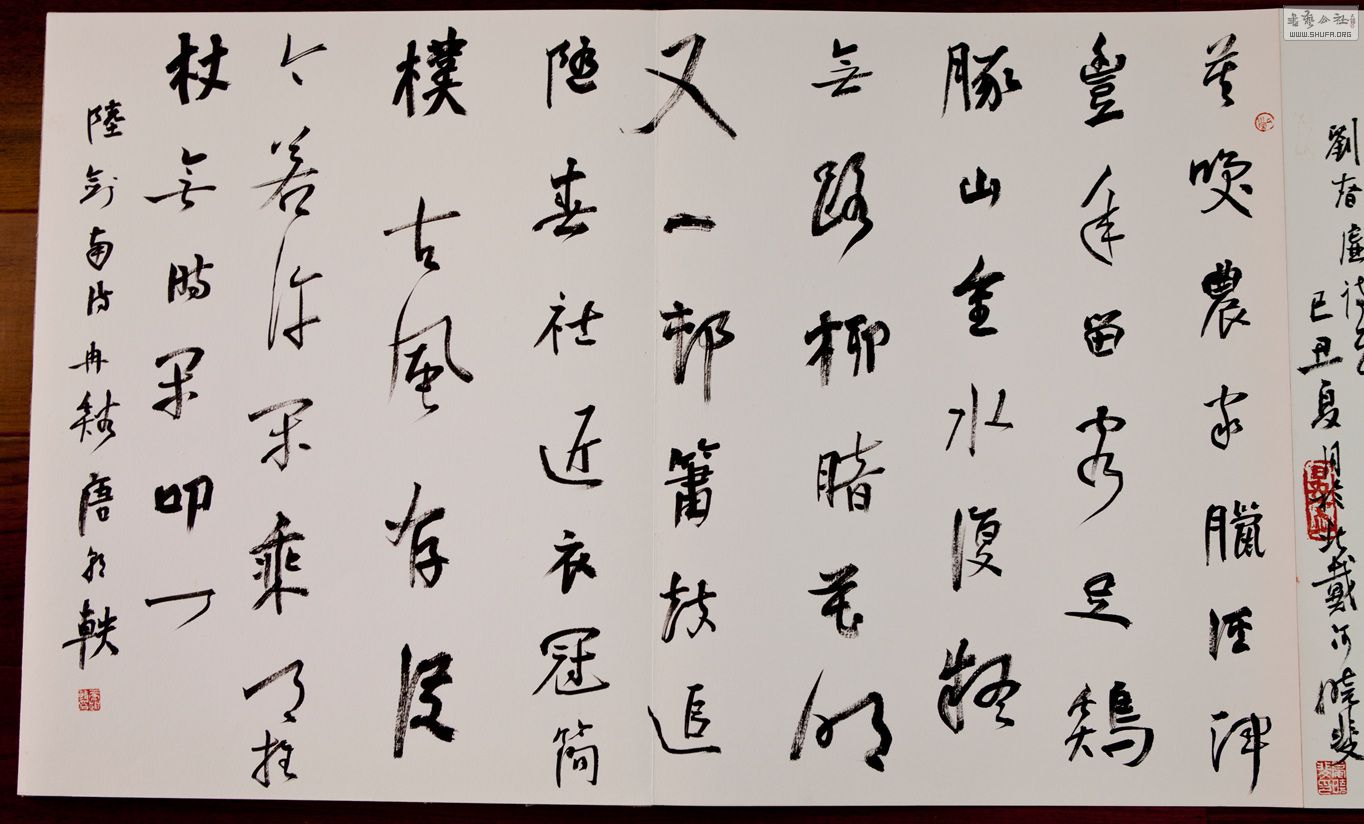 書藝公社
WWW.SHUFA.ORG
劉春廬
己丑夏月於北戴河曉斐
莫咲農家臘酒渾
豐年留客足鷄
豚山重水復疑
無路柳暗花明
又一邨簫鼓追
隨春社近衣冠簡
樸古風存從
今若許閑乘月拄
杖無時閑叩门
陸劍南詩冉谿唐朝軼